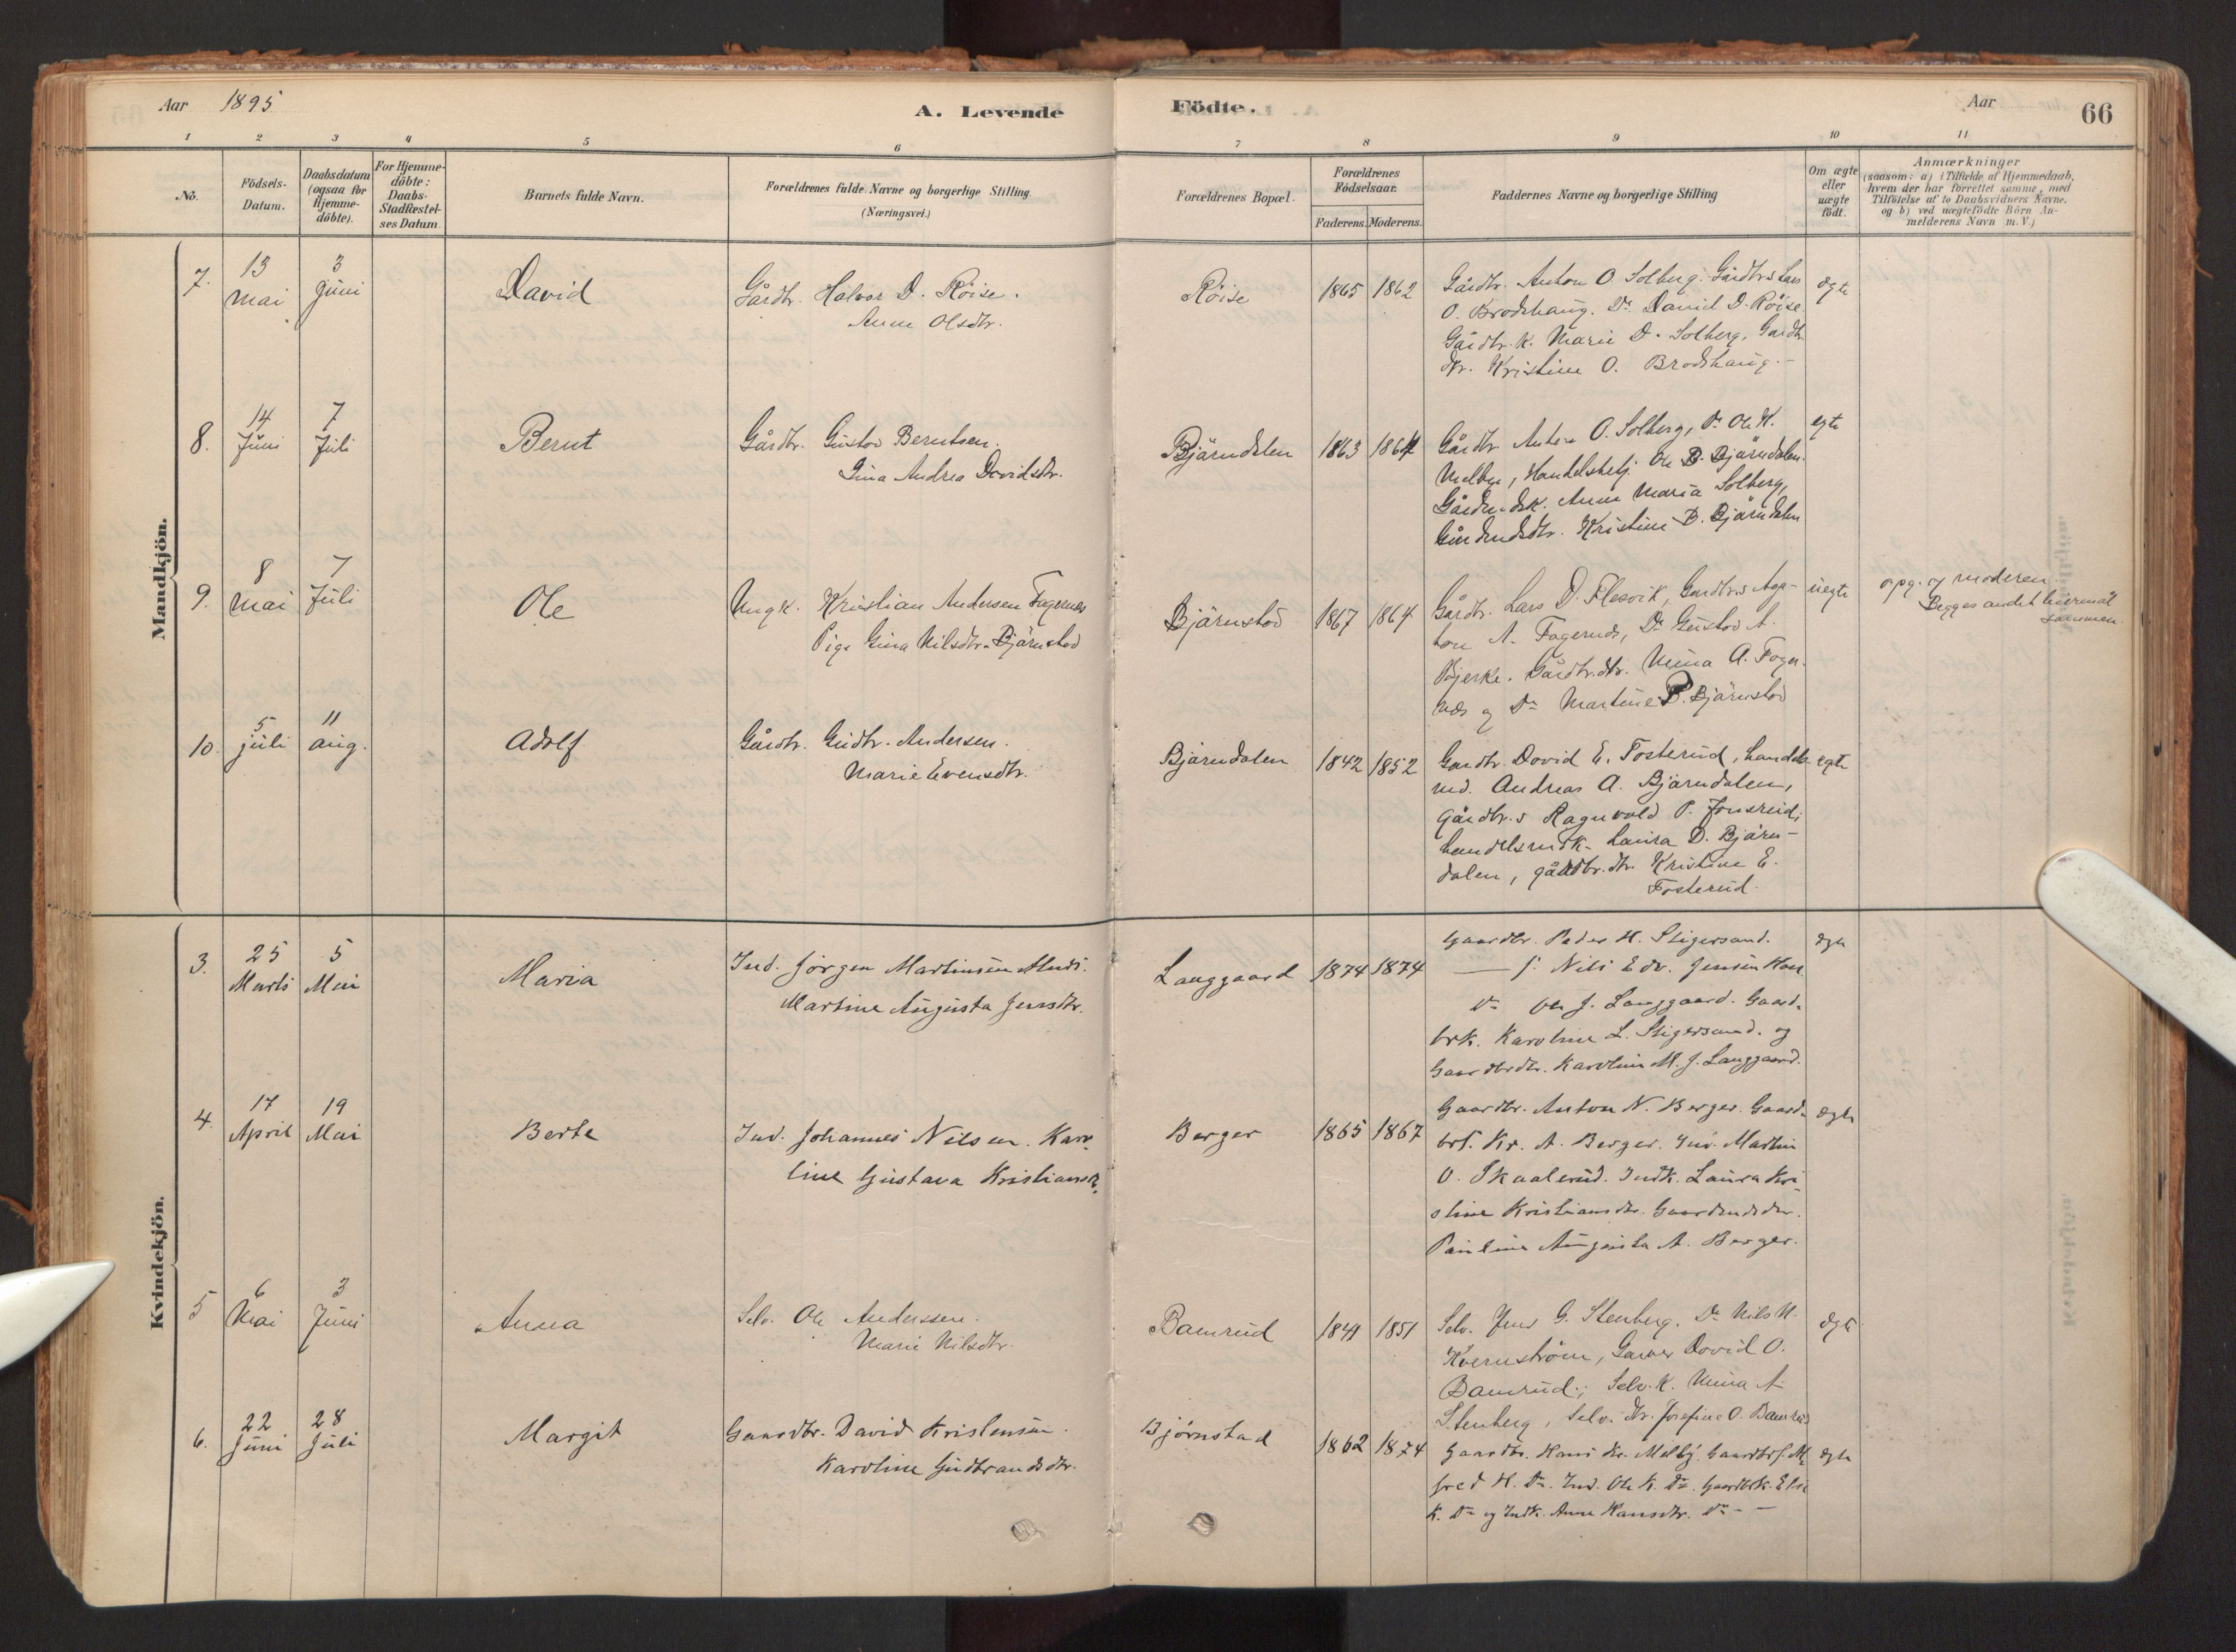 Aar 1895
A. Levende
Födte.
Aar
66
1 2 3 4 5 6 7 8 9 10 11
No.
Födsels-
Datum.
Daabsdatum
(ogsaa for
Hjemme-
döbte).
For Hjemme-
döbte:
Daabs-
Stadfæstel-
ses Datum.
Barnets fulde Navn.
Forældrenes fulde Navne og borgerlige Stilling
(Næringsvei.)
Forældrenes Bopæl.
Forældrenes
Födselsaar.
Faderens. Moderens.
Faddernes Navne og borgerlige Stilling
Om ægte
eller
uægte
födt.
Anmærkninger
(saasom: a) i Tilfælde af Hjemmedaab,
hvem der har forrettet samme, med
Tilföielse af to Daabsvidners Navne.
og b) ved uægtefödte Börn An-
melderens Navn m. V.)
Mandkjön.
7.
13
Mai
3
Juni
David
Gårdbr. Halvor D. Röise.
Anne Olsdtr.
Röise
1865 1862
Gårdbr. Anton O. Solberg. Gårdbrs Lars
O. Brodshaug. Do David D. Röise
Gårdbr. K. Marie D. Solberg, Gårdb.
dtr. Kristine O. Brodshaug.-
ægte
8.
14
Juni
7
Juli
Bernt
Gårdbr. Gustav Berntsen.
Gina Andrea Davidsdtr.
Bjärndalen
1863 1864
Gårdbr Anton O. Solberg, Do Ole K.
Melbye, Handelsbetj. Ole B. Bjärndalen.
Anne Maria Solberg,
Kristine B. Bjärndalen
egte
9.
8
Mai
7
Juli
Ole
Ungk. Kristian Andersen Fagernes
Pige Gina Nilsdtr. Bjärnstad
Bjärnstad
1867 1864
Gårdbr. Lars D. Flesvik, Gardbrs
A. Fagernds, Do Gustav A.
Bjerke. Gårdbr.dtr. Mina A. Fager-
næs og Do Martine P. Bjärnstad
uegte
opg. og moderen
Begges andet leiermål
sammen.
10.
5
juli
11
aug.
Adolf
Gårdbr. Gudbr. Andersen.
Marie Evensdtr.
Bjärndalen
1842 1852
Gardbr. David E. Fosterud, handels-
md. Andreas A. Bjärndalen,
gårdbr.s Ragnvald P. Jonsrud;
handelsmdk. Laura D. Bjärn-
dalen, gårdbr.dtr. Kristine E.
Fosterud.
egte
Kvindekjön.
3.
25
Marts
5
Mai
Maria
Ind. Jörgen Martinsen
Martine Augusta Jensdtr.
Langgaard
1874 1874
Gaardbr. Peder H. Stigersand.
— s. Nils Edv. Jensen
Do Ole J. Langgaard. Gaard-
brk. Karoline L. Stigersand. og
Gaardbrdtr. Karoline M. J. Langgaard.
ægte
4.
17
April
19
Mai
Berte
Ind. Johannes Nilsen. Karo-
line Gustava Kristiansdtr.
Berger
1865 1867
Gaardbr. Anton N. Berger. Gaard-
brs. Kr. A. Berger. Ind. Martin
O. Skaalerud. Indk. Laura Kri-
stine Kristiansdtr.
Pauline Augusta A. Berger.
ægte
5
6
Mai
3
Juni
Anna
Selv. Ole Anderssen.
Marie Nilsdtr.
Bamrud
1841 1851
Selv. Jens G. Stenberg. Do Nils N.
Kvernström, Garver David O.
Bamrud; Selv. K. Mina A
Stenberg, Selv. dtr. Josefine O. Bamrud
ægte
6.
22
Juni
28
Juli
Margit
Gaardbr. David Kristensen.
Karoline Gudbrandsdtr.
Bjørnstad
1862 1874
Gaardbr. Hans Kr. Melby. Gaardbrs. Al-
fred H. Do. Ind. Ole K. Do. Gaardbrk. Elise
K. Do og Indk. Anne Hansdtr. Do - —
ægte